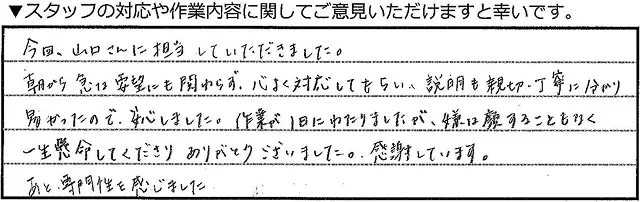 ▼スタッフの対応や作業内容に関してご意見いただけますと幸いです。
今回、山口さんに担当していただきました。
朝から急な要望にも関わらず、心よく対応してもらい、説明も親切・丁寧に分かり
易かったので、安心しました。作業が1日にわたりましたが、嫌な顔することもなく
一生懸命してくださりありがとうございました。感謝しています。
あと、専門性を感じました